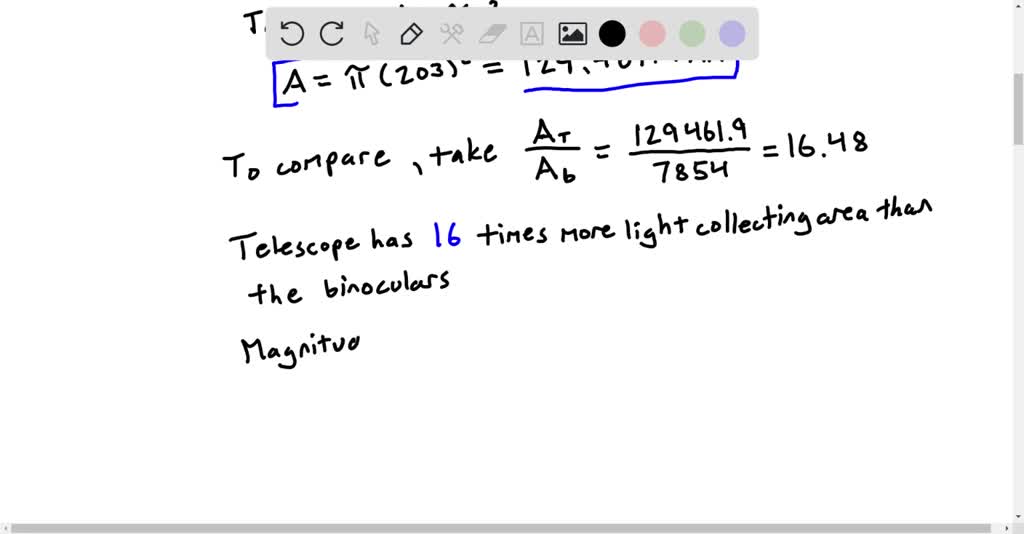 A = π(203)² =
To compare, take A_T / A_b = 129461.9 / 7854 = 16.48
Telescope has 16 times more light collecting area than
the binoculars
Magnitud